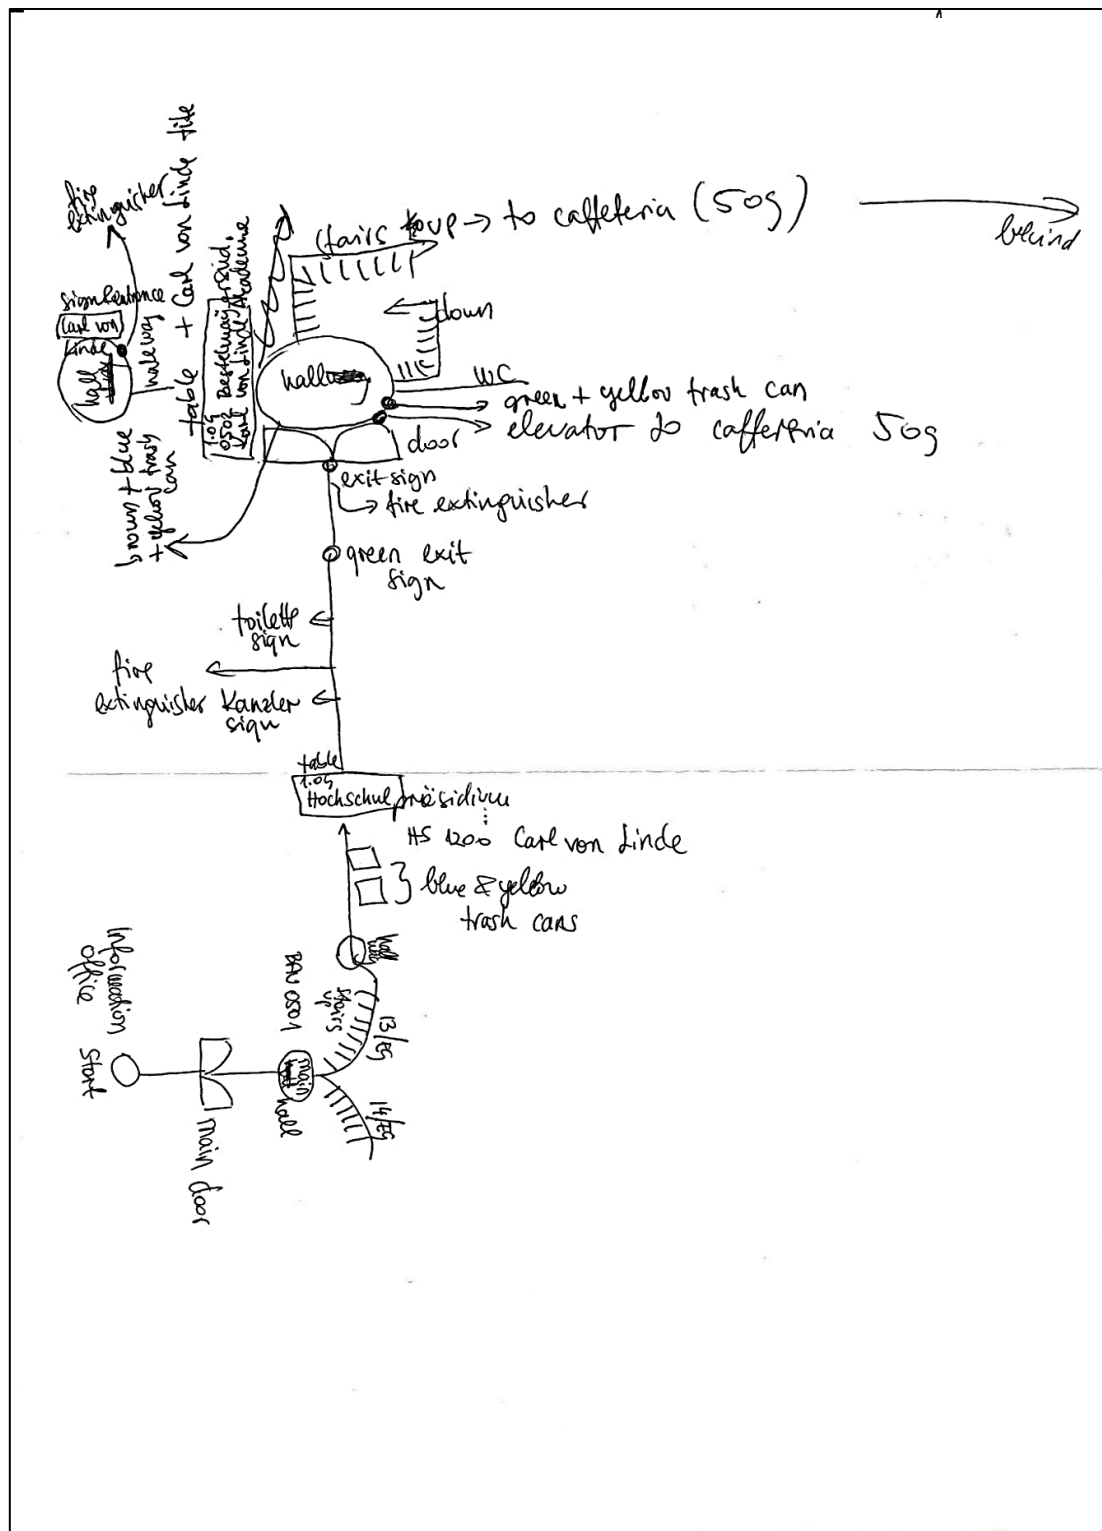 fire
extinguisher
sign
Carl von
Linde
hall
hallway
table + Carl von Linde
1.04
0502
Carl von Linde Akademie
brown + blue
+ yellow trash
can
stairs up → to caffeteria (509)
behind
down
hall
WC
green + yellow trash can
elevator to caffeteria 509
door
exit sign
fire extinguisher
green exit
sign
toilette
sign
fire
extinguisher
Kanzler
sign
table
1.04
Hochschulpräsidium
...
HS 1200 Carl von Linde
blue & yellow
trash cans
hall
stairs
up
13/EG
14/EG
main
hall
main door
Information
office
Start